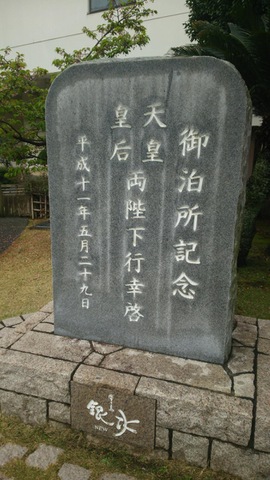 御泊所記念
天皇
皇后
両陛下行幸啓
平成十一年五月二十九日
銀水
NEW